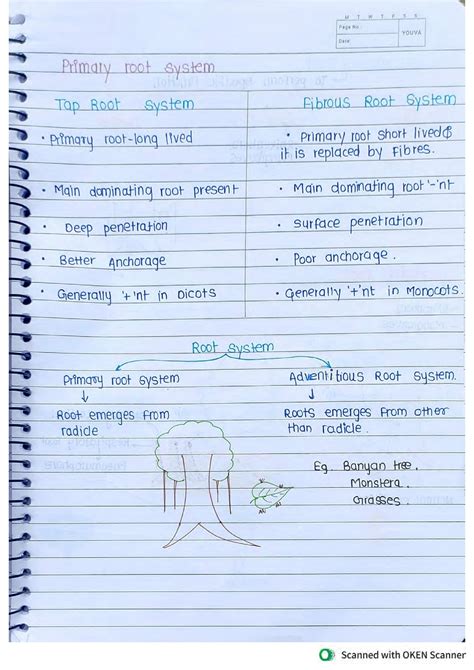 M T W T F S S
Page No.:
Date:
YOUVA
Primary root system
Tap Root System
Fibrous Root System
• Primary root-long lived
• Primary root short lived &
it is replaced by Fibres.
• Main dominating root present
• Main dominating root '-'nt
• Deep penetration
• Surface penetration
• Better Anchorage
• Poor anchorage.
• Generally '+'nt in Dicots
• Generally '+'nt in Monocots.
Root System
Primary root System
Adventitious Root System.
↓
↓
Root emerges from
radicle
Roots emerges from other
than radicle.
Eg. Banyan tree,
Monstera,
Grasses.
Scanned with OKEN Scanner